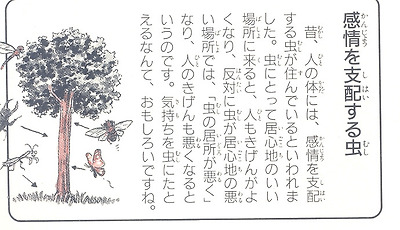 感情を支配する虫
昔、人の体には、感情を支配
する虫が住んでいるといわれま
した。虫にとって居心地のいい
場所に来ると、人もきげんがよ
くなり、反対に虫が居心地の悪
い場所では、「虫の居所が悪く」
なり、人のきげんも悪くなると
いうのです。気持ちを虫にたと
えるなんて、おもしろいですね。